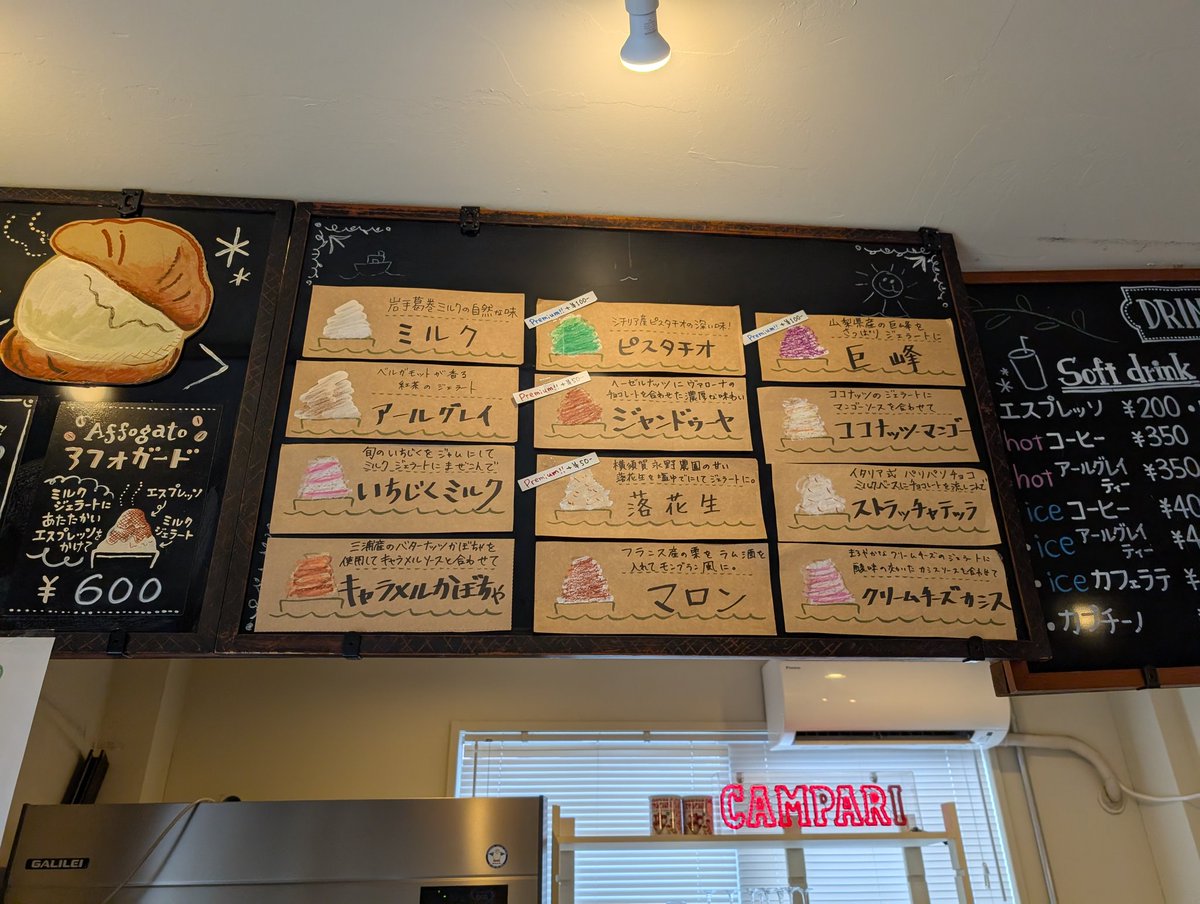 Affogato
アフォガード
ミルク
ジェラートに
あたたかい
エスプレッソを
かけ?
エスプレッソ
ミルク
ジェラート
¥600
岩手葛巻ミルクの自然な味
ミルク
ベルガモットが香る
紅茶のジェラート
アールグレイ
旬のいちじくをジャムにして
ミルクジェラートにまぜこんで
いちじくミルク
三浦産のバターナッツかぼちゃを
使用してキャラメルソースと合わせて
キャラメルかぼちゃ
Premium!! +¥100-
シチリア産ピスタチオの深い味!
ピスタチオ
Premium!! +¥50-
ヘーゼルナッツにヴァローナの
チョコレートを合わせた濃厚な味わい
ジャンドゥーヤ
Premium!! +¥50-
横須賀 永野農園のぜい
落花生を塩中でにしてジェラートに。
落花生
フランス産の栗をラム酒を
入れてモンブラン風に。
マロン
Premium!! +¥100-
山梨県産の巨峰を
さっぱりジェラートに
巨峰
ココナッツのジェラートに
マンゴーソースを合わせて
ココナッツマンゴー
イタリア式 パリパリチョコ
ミルクベースにチョコレートを流しこんで
ストラッチャテッラ
まろやかなクリームチーズのジェラートに
酸味の効いたカシスソースを合わせて
クリームチーズカシス
DRIN
Soft drink
エスプレッソ ¥200
hot コーヒー ¥350
hot アールグレイティー ¥350
ice コーヒー ¥40
・ice アールグレイティー ¥4
・ice カフェラテ
・カプチーノ
DAIKIN
CAMPARI
GALILEI